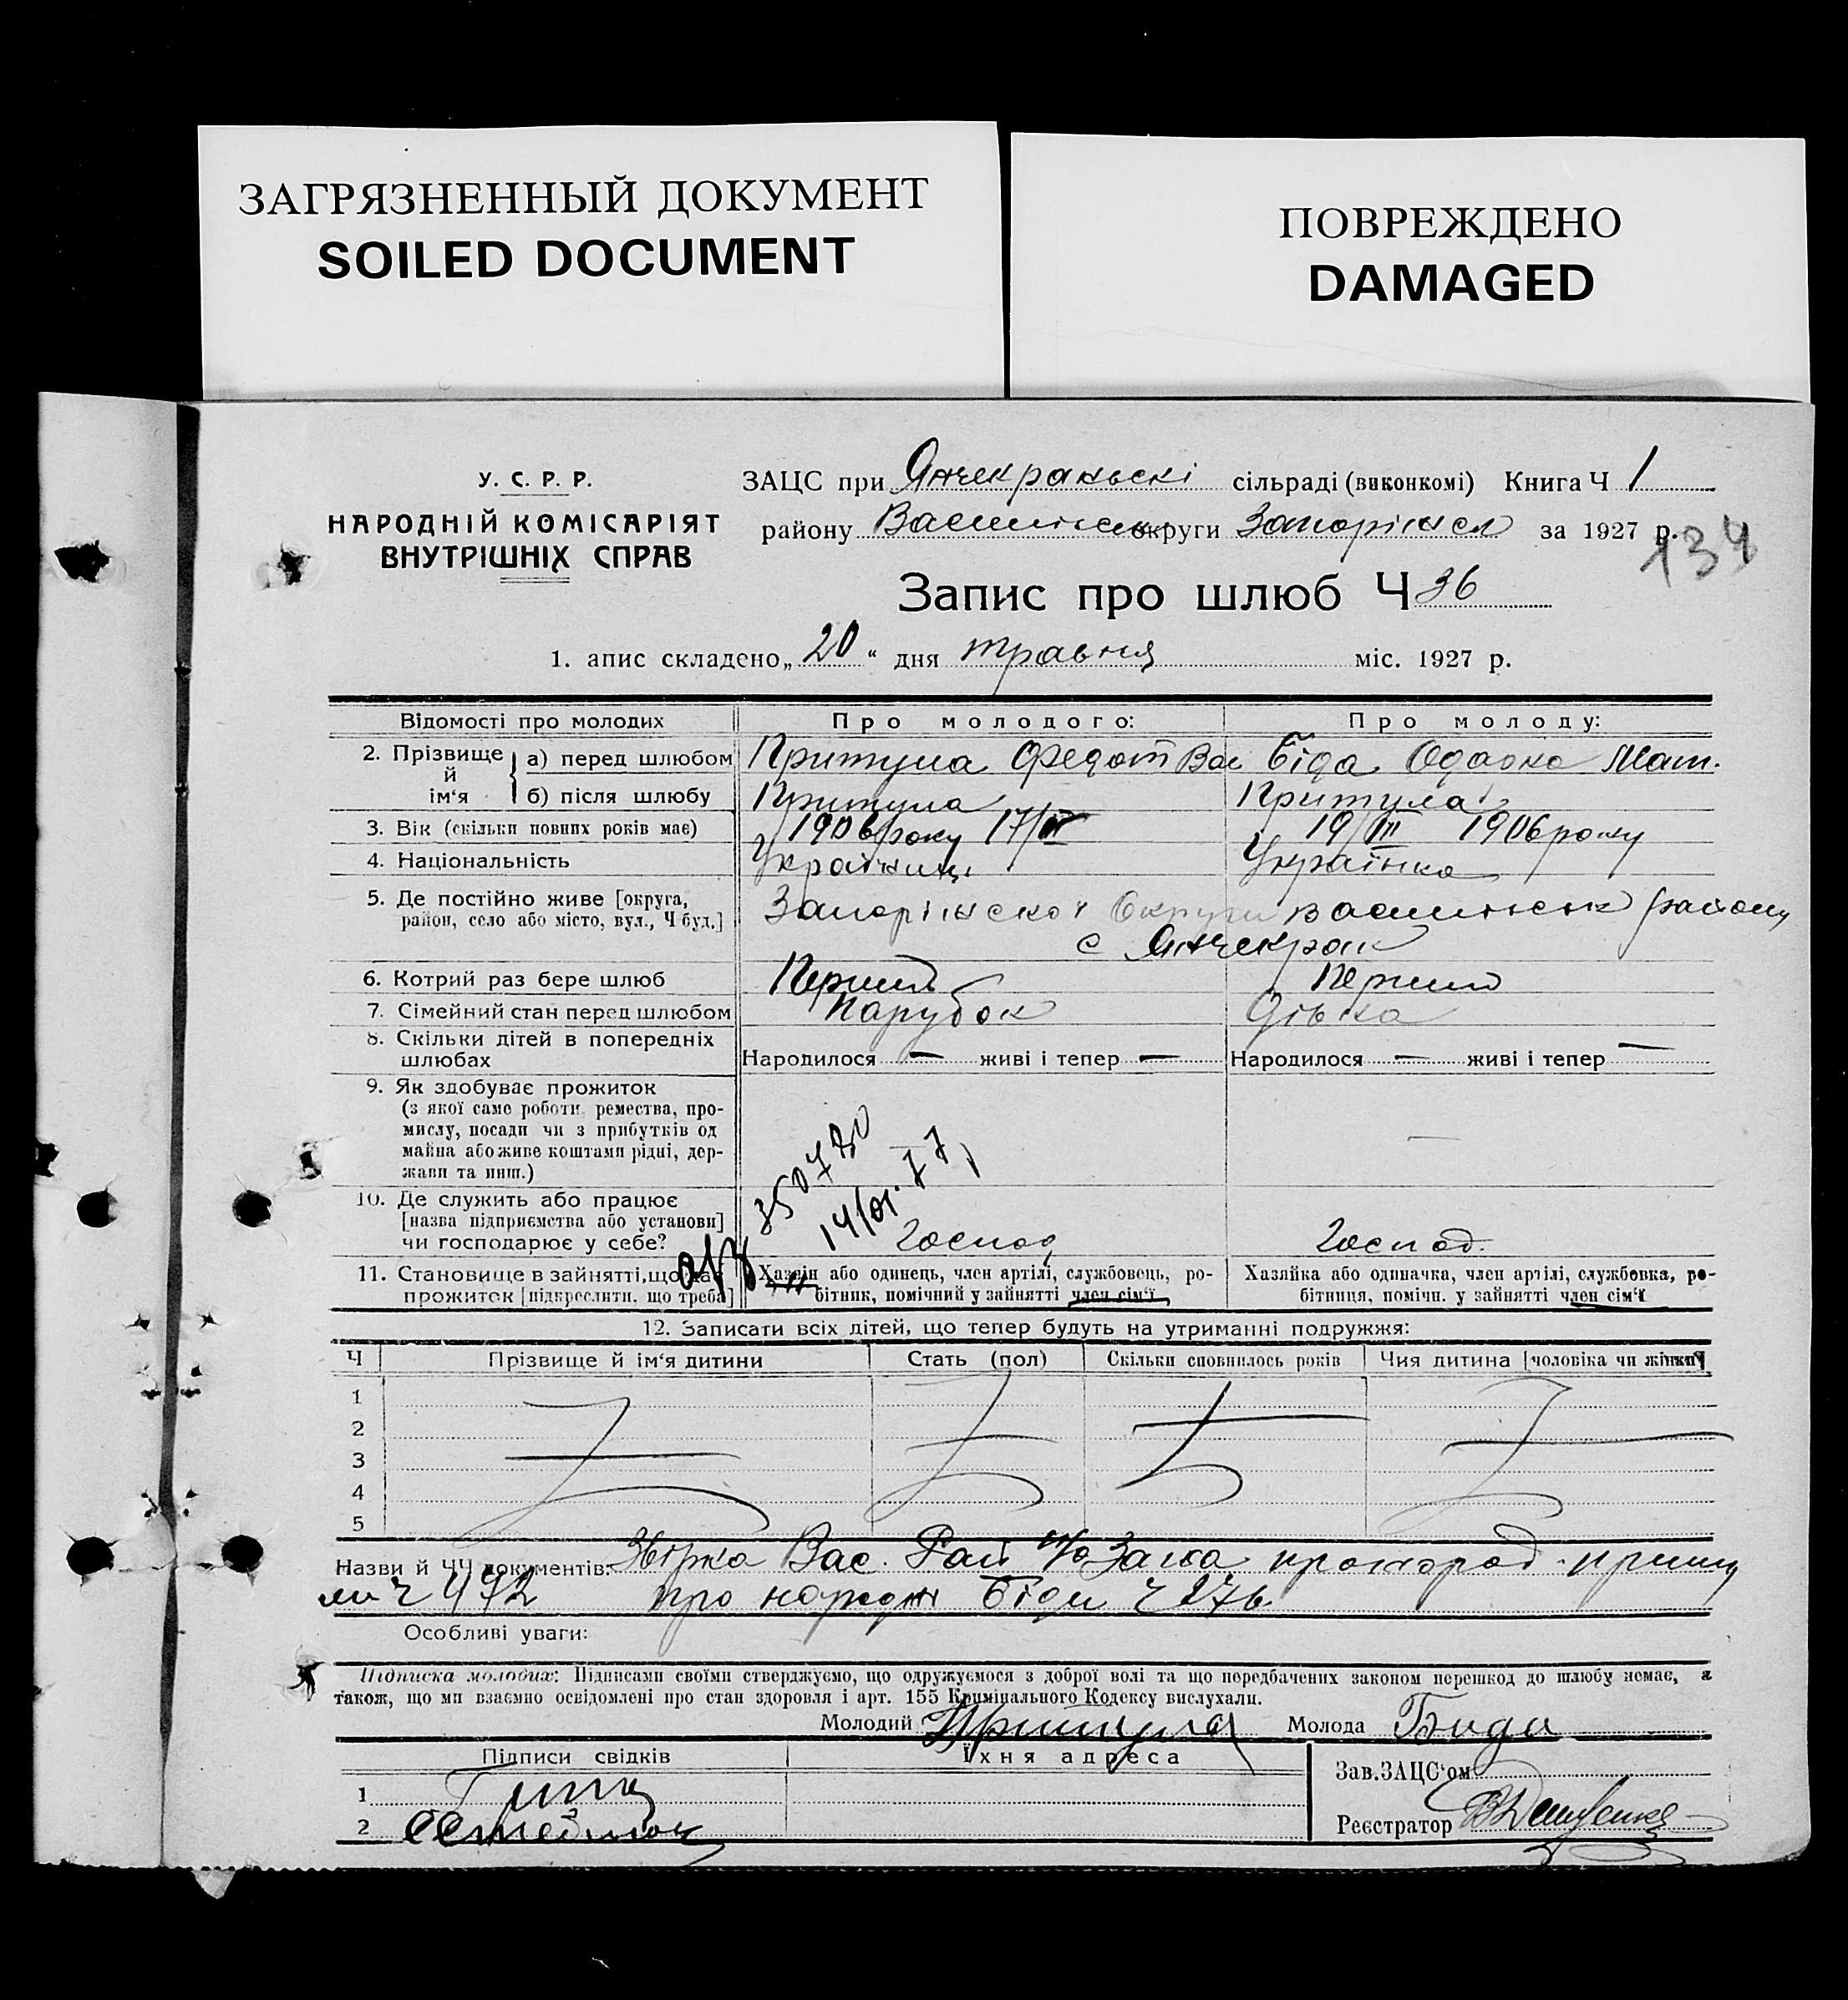 ЗАГРЯЗНЕННЫЙ ДОКУМЕНТ
SOILED DOCUMENT
ПОВРЕЖДЕНО
DAMAGED
У. С. Р. Р.
НАРОДНІЙ КОМІСАРІЯТ
ВНУТРІШНІХ СПРАВ
ЗАЦС при Янчекраньскі сільраді (виконкомі) Книга Ч 1
району Васильівськ округи Запоріжск за 1927 р.
134
Запис про шлюб Ч 36
1. апис складено „20“ дня травня міс. 1927 р.
Відомості про молодих Про молодого: Про молоду:
2. Прізвище й ім'я а) перед шлюбом Притула Федот Вас Біда Одарка Мат.
б) після шлюбу Притула Притула
3. Вік (скільки повних років має) 1906 року 17/III 19/III 1906 року
4. Національність Українець Українка
5. Де постійно живе [округа, район, село або місто, вул., Ч буд.] Запоріжской Округи Васильівськ району
с Янчекрак
6. Котрий раз бере шлюб Перший Перший
7. Сімейний стан перед шлюбом Парубок Дівка
8. Скільки дітей в попередніх шлюбах Народилося — живі і тепер — Народилося — живі і тепер —
9. Як здобуває прожиток
(з якої саме роботи, ремества, про-
мислу, посади чи з прибутків од
майна або живе коштами рідні, дер-
жави та инш.) —
350720
14/01.77
10. Де служить або працює
[назва підприємства або установи]
чи господарює у себе? Господ Господ.
11. Становище в зайнятті, що дає прожиток [підкреслити, що треба]
Хазяїн або одинець, член артілі, службовець, ро-
бітник, помічний у зайнятті член сім'ї
Хазяйка або одиначка, член артілі, службовка, ро-
бітниця, помічн. у зайнятті член сім'ї
12. Записати всіх дітей, що тепер будуть на утриманні подружжя:
Ч Прізвище й ім'я дитини Стать (пол) Скільки сповнилось років Чия дитина [чоловіка чи жінки]
1
2
3
4
5
Назви й ЧЧ документів: Вас. Рай
ч 492 про народж Біди ч 276
Особливі уваги:
Підписка молодих: Підписами своїми стверджуємо, що одружуємося з доброї волі та що передбачених законом перешкод до шлюбу немає, а
також, що ми взаємно освідомлені про стан здоровля і арт. 155 Кримінального Кодексу вислухали.
Молодий Притула Молода Бида
Підписи свідків Їхня адреса Зав.ЗАЦС'ом
1
2 Реєстратор